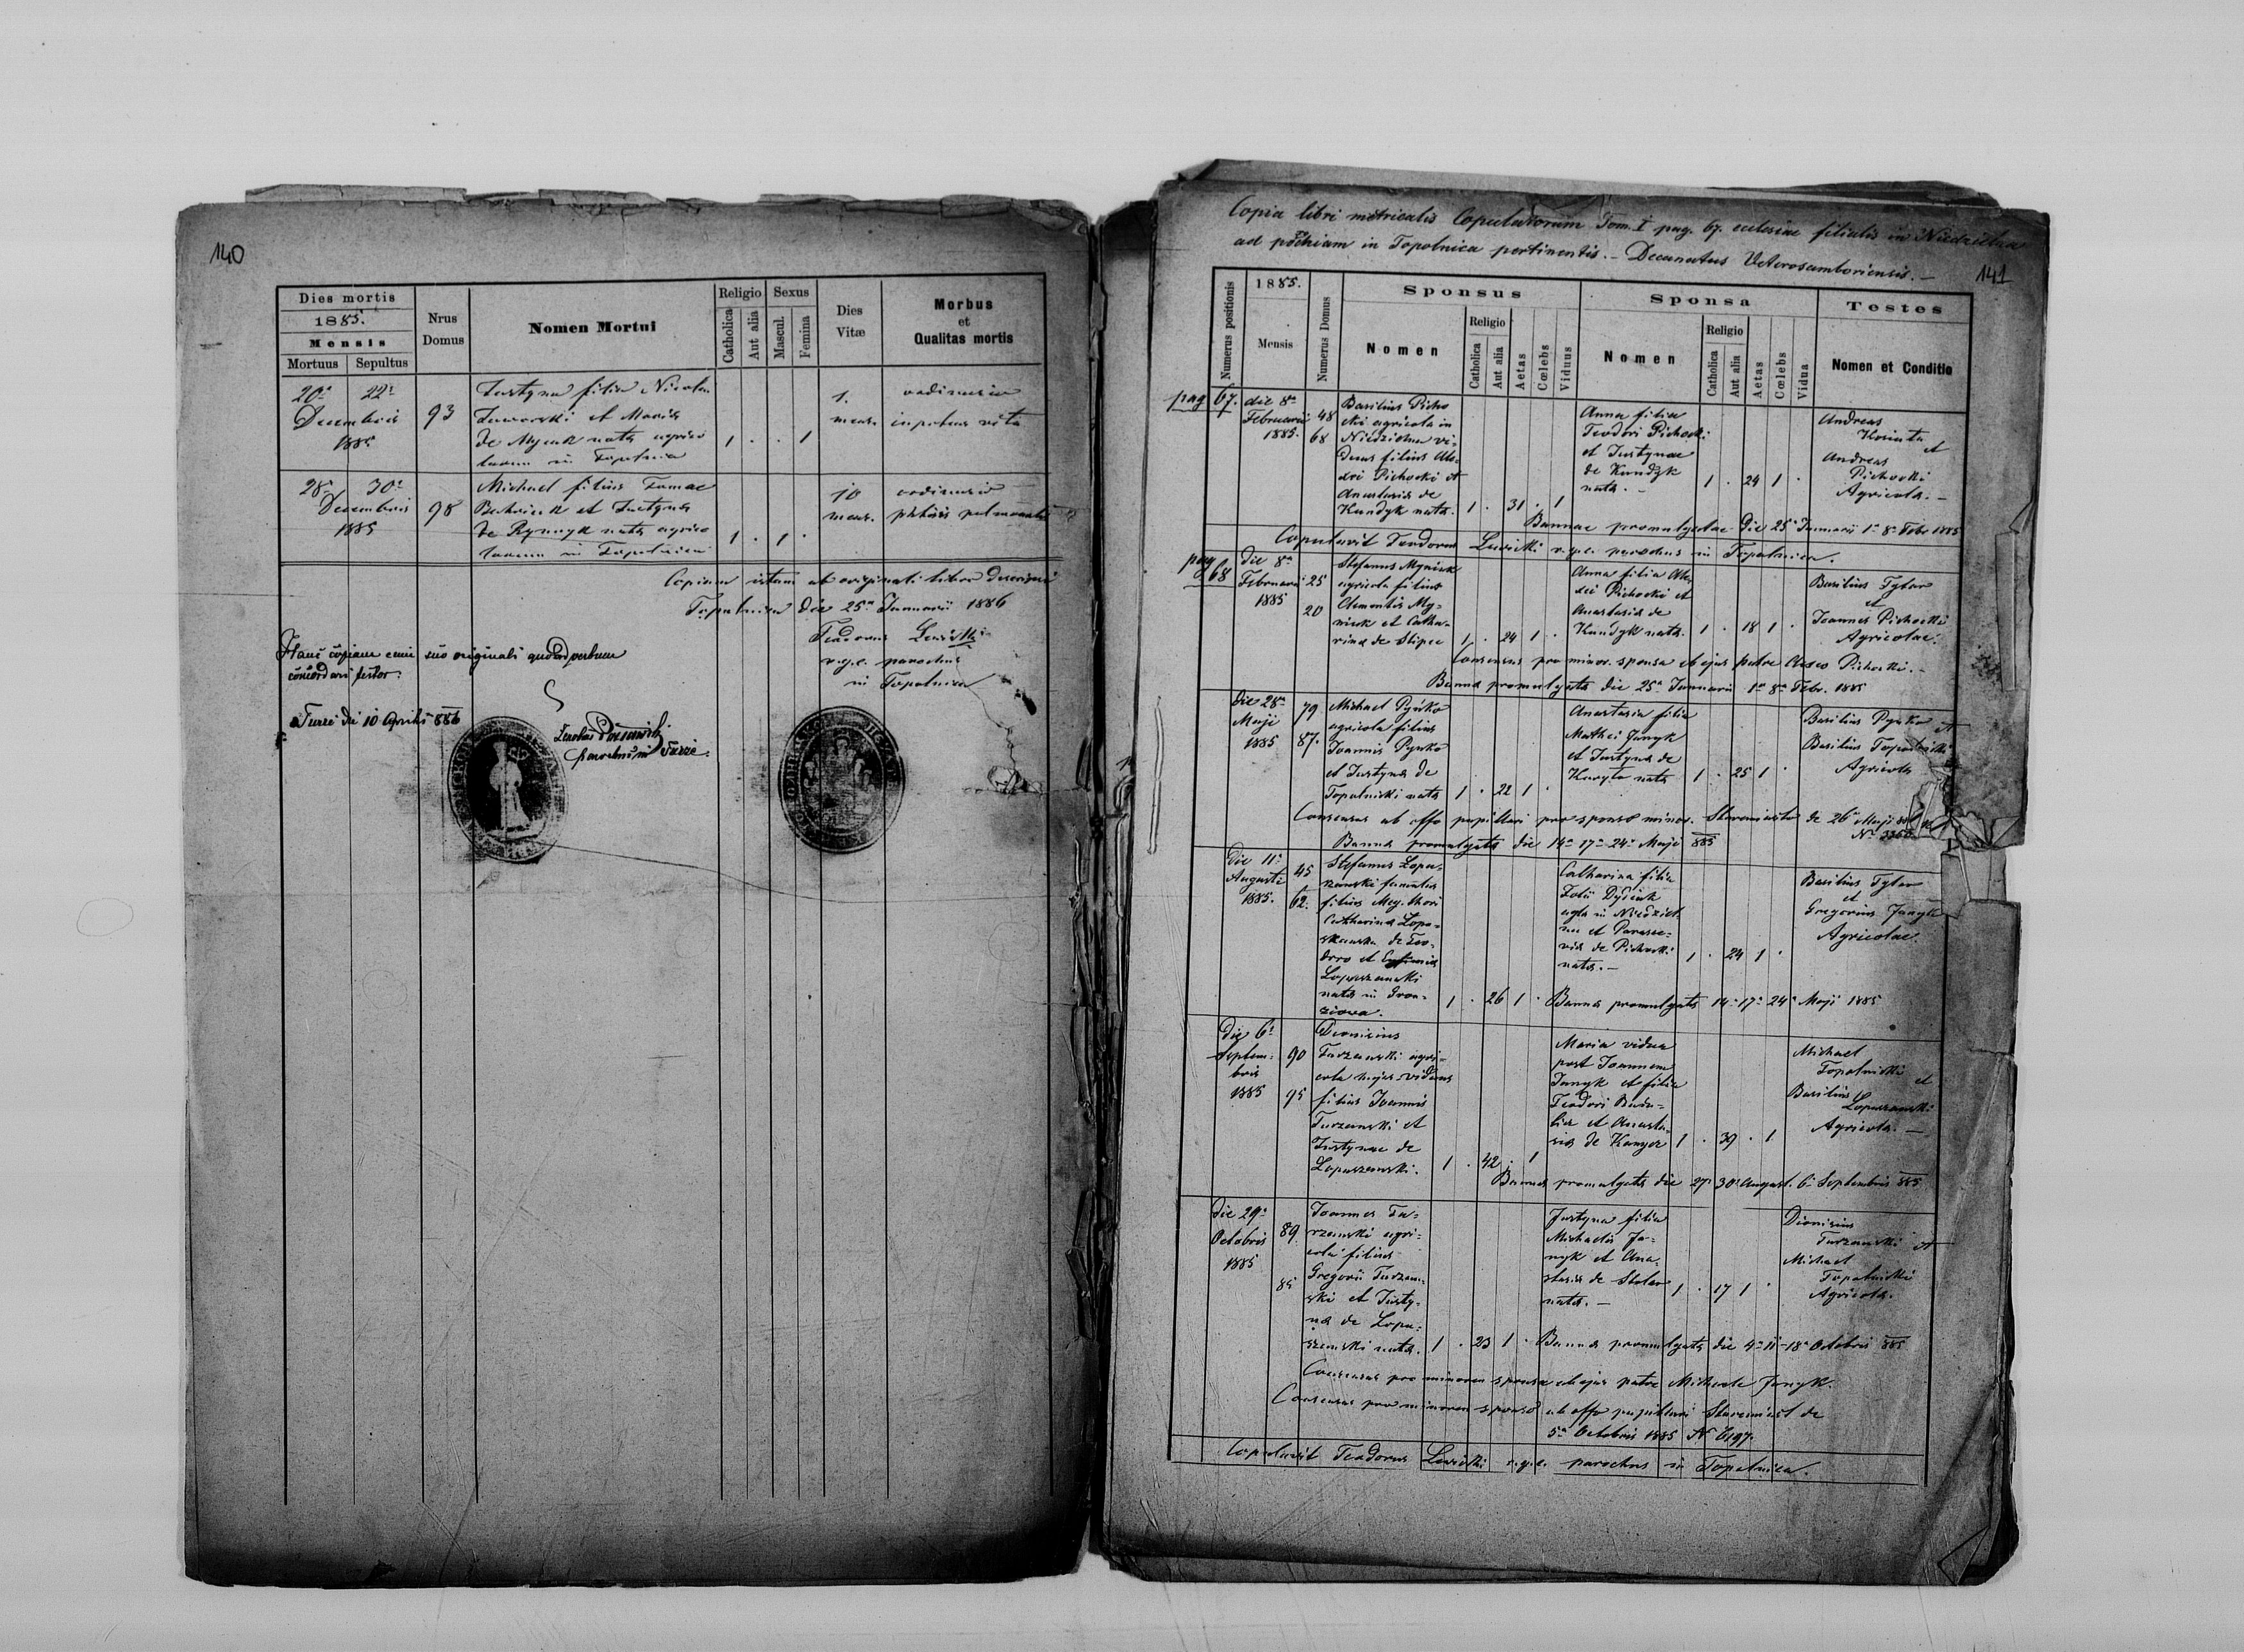 140
Dies mortis
1885.
Mensis
Mortuus
Sepultus
Nrus
Domus
Nomen Mortui
Religio
Catholica
Aut alia
Sexus
Mascul.
Femina
Dies
Vitæ
Morbus
et
Qualitas mortis
20ª 22ª
Decembris
1885
93
Justyna filia Nicolai
Jaworski et Maria
de nata agrico
larum in Topolnica
1 . . 1
1.
mens.
ordinaria
28ª 30ª
Decembris
1885
98
Michael filius
et Justyna
de Rynnyk nata agrico
larum in Topolnica
1 . 1 .
10
mens.
ordinaria
phtisis pulmonalis
Copiam istam ab originali libro descripsi
Topolnica die 25ª Januarii 1886
Teodorus Lewicki
r.g.c. parochus
in Topolnica
Hanc copiam cum suo originali quoad verbum
concordari testor.
Turze die 10 Aprilis 886
parochus in Turze.
Copia libri metricalis Copulatorum Tom. I pag. 67. ecclesiae filialis in Niedzielna
ad pochiam in Topolnica pertinentis. – Decanatus Veterosamboriensis. –
141
Numerus positionis
1885.
Mensis
Numerus Domus
Sponsus
Nomen
Religio
Catholica
Aut alia
Aetas
Cœlebs
Viduus
Sponsa
Nomen
Religio
Catholica
Aut alia
Aetas
Cœlebs
Vidua
Testes
Nomen et Conditio
pag 67.
die 8ª
Februarii
1885.
48
68
Basilius Picho
cki agricola in
Niedzielna vi-
duus filius Ale-
xei Pichocki et
Anastasia de
Kundyk nata.
1 . 31 . 1
Anna filia
Teodori Pichocki
et Justynae
de Kundyk
nata. –
1 . 24 1 .
Andreas
et
Andreas
Pichocki
Agricola. –
Bannae promulgatae die 25ª Januarii 1ª 8ª Febr 1885
Copulavit Teodorus Lewicki r.g.c. parochus in Topolnica.
pag 68
die 8ª
Februarii
1885
25
20
Stefanus Myniuk
agricola filius
Clementis My-
niuk et Catha-
rina de Stipce
1 . 24 1 .
Anna filia Ale-
xei Pichocki et
Anastasia de
Kundyk nata.
1 . 18 1 .
Basilius Tytar
et
Joannes Pichocki
Agricolae.
Consensus pro minor. sponsa ab ejus patre Alexeo Pichocki. –
Banna promulgata die 25ª Januarii 1ª 8ª Febr. 1885
die 28ª
Maji
1885
79
87.
Michael Pynko
agricola filius
Joannis Pynko
et Justyna de
Topolnicki nata
1 . 22 1 .
Anastasia filia
Mathei Janyk
et Justyna de
nata
1 . 25 1 .
Basilius Pynko et
Basilius Topolnicki
Agricola
Consensus ab offo pupillari pro sponso minor. Staromiasto de 26ª Maji
Banna promulgata die 14ª 17ª 24ª Maji 885
die 11ª
Augusti
1885.
45
62.
Stefanus Lopu-
szanski famulus
filius illeg. thori
Catharina Lopu-
szanska de Teo-
doro et Eufimia
Lopuszanski
nata in Gron-
ziowa.
1 . 26 1 .
Catharina filia
agla in Niedziel-
na et Parasce-
via de Pichocki
nata. –
1 . 24 1 .
Basilius Tytar
et
Gregorius Janyk
Agricolae.
Banna promulgata 14ª 17ª 24ª Maji 1885
die 6ª
Septem-
bris
1885
90
95
Dionisius
Turzanski agri-
cola hujas viduus
filius Joannis
Turzanski et
Justynae de
Lopuszanski.
1 . 42 . 1
Maria vidua
post Joannem
Janyk et filia
Teodori
et Anasta-
sia de
1 . 39 . 1
Michael
Topolnicki
et
Basilius
Lopuszanski
Agricola. –
Banna promulgata die 27ª 30ª August. 6ª Septembris 885
die 29ª
Octobris
1885
89.
85
Joannes Tu-
rzanski agri-
cola filius
Gregorii Turzan-
ski et Justy-
na de Lopu-
szanski nata.
1 . 23 1 .
Justyna filia
Michaelis Ja-
nyk et Ana-
stasia de Stolar
nata. –
1 . 17 1 .
Dionisius
Turzanski et
Michael
Topolnicki
Agricola.
Banna promulgata die 4ª 11ª 18ª Octobris 885
Consensus pro minoren sponsa ab ejus patre Michaele Janyk.
Consensus pro minoren sponso ab offo pupillari Staremiast de
5ª Octobris 1885 № 6197.
Copulavit Teodorus Lewicki r.g.c. parochus in Topolnica.